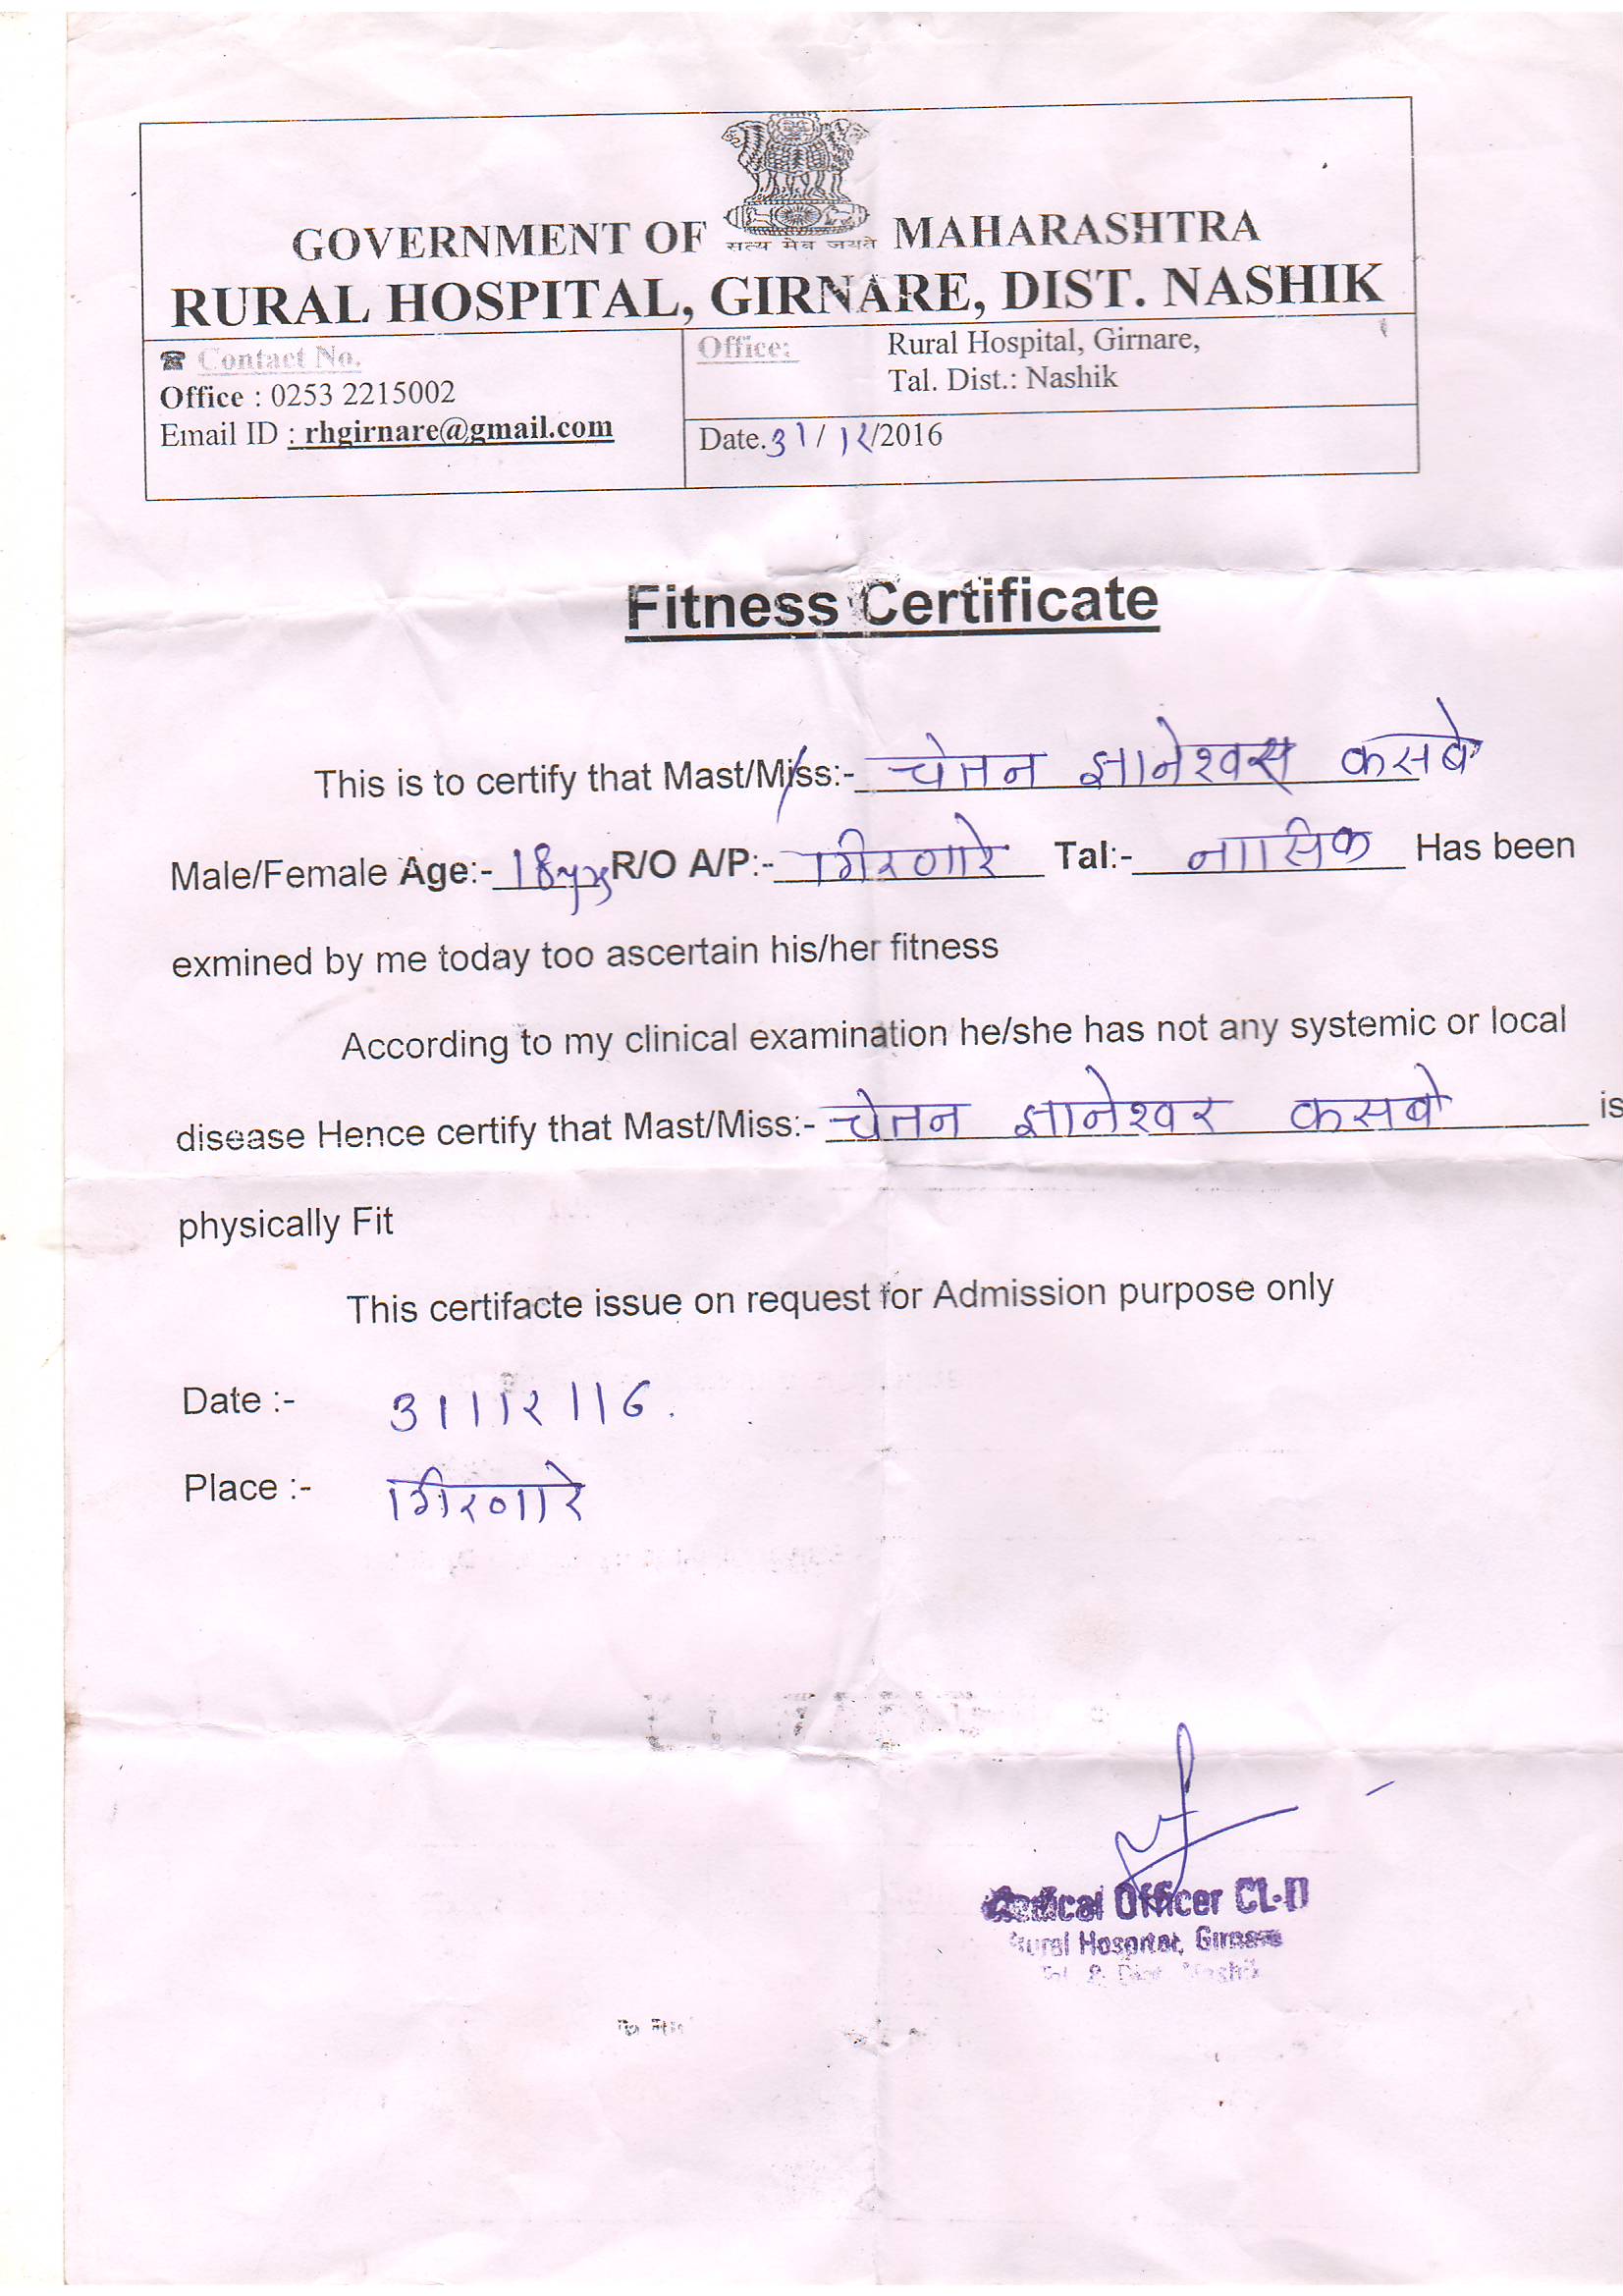 सत्य मेव जयते
GOVERNMENT OF MAHARASHTRA
RURAL HOSPITAL, GIRNARE, DIST. NASHIK
☎ Contact No.
Office : 0253 2215002
Email ID : rhgirnare@gmail.com
Office: Rural Hospital, Girnare,
Tal. Dist.: Nashik
Date.31/12/2016
Fitness Certificate
This is to certify that Mast/Miss:- चेतन ज्ञानेश्वर कसबे
Male/Female Age:- 18yrs R/O A/P:- गिरणारे Tal:- नाासिक Has been
exmined by me today too ascertain his/her fitness
According to my clinical examination he/she has not any systemic or local
disease Hence certify that Mast/Miss:- चेतन ज्ञानेश्वर कसबे is
physically Fit
This certifacte issue on request for Admission purpose only
Date :- 31/12/16.
Place :- गिरणारे
Medical Officer CL-II
Rural Hospital, Girnare
Tal. & Dist. Nashik